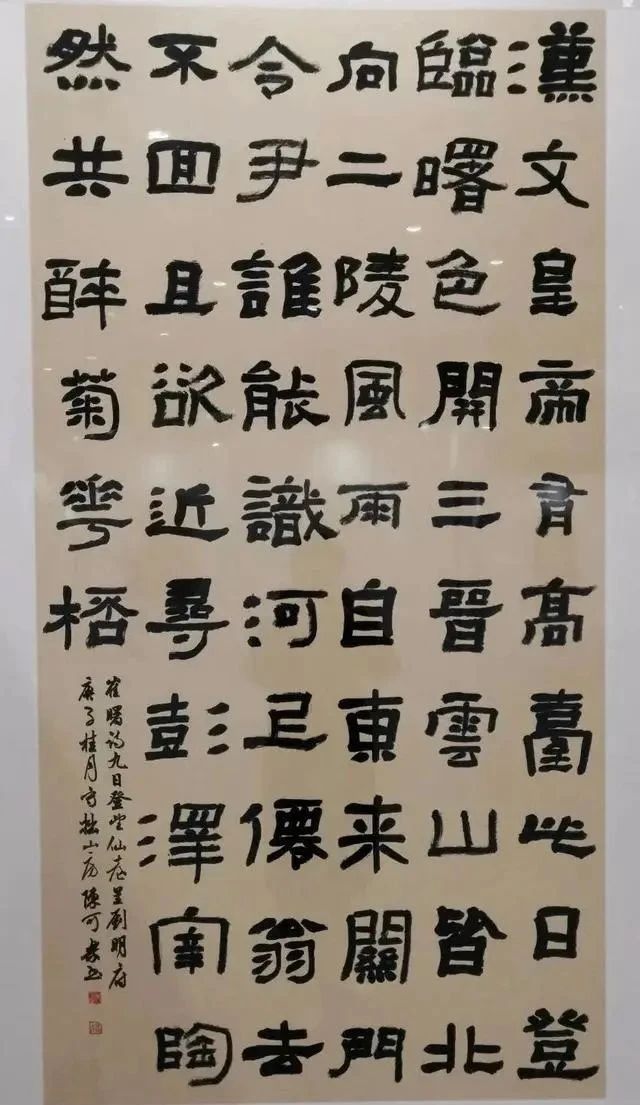 漢文皇帝有高臺此日登
臨曙色開三晉雲山皆北
向二陵風雨自東来關門
令尹誰能識河上僊翁去
不回且欲近尋彭澤宰陶
然共醉菊華桮
崔曙詩九日登望仙臺呈劉明府
庚子桂月拙山房陳可